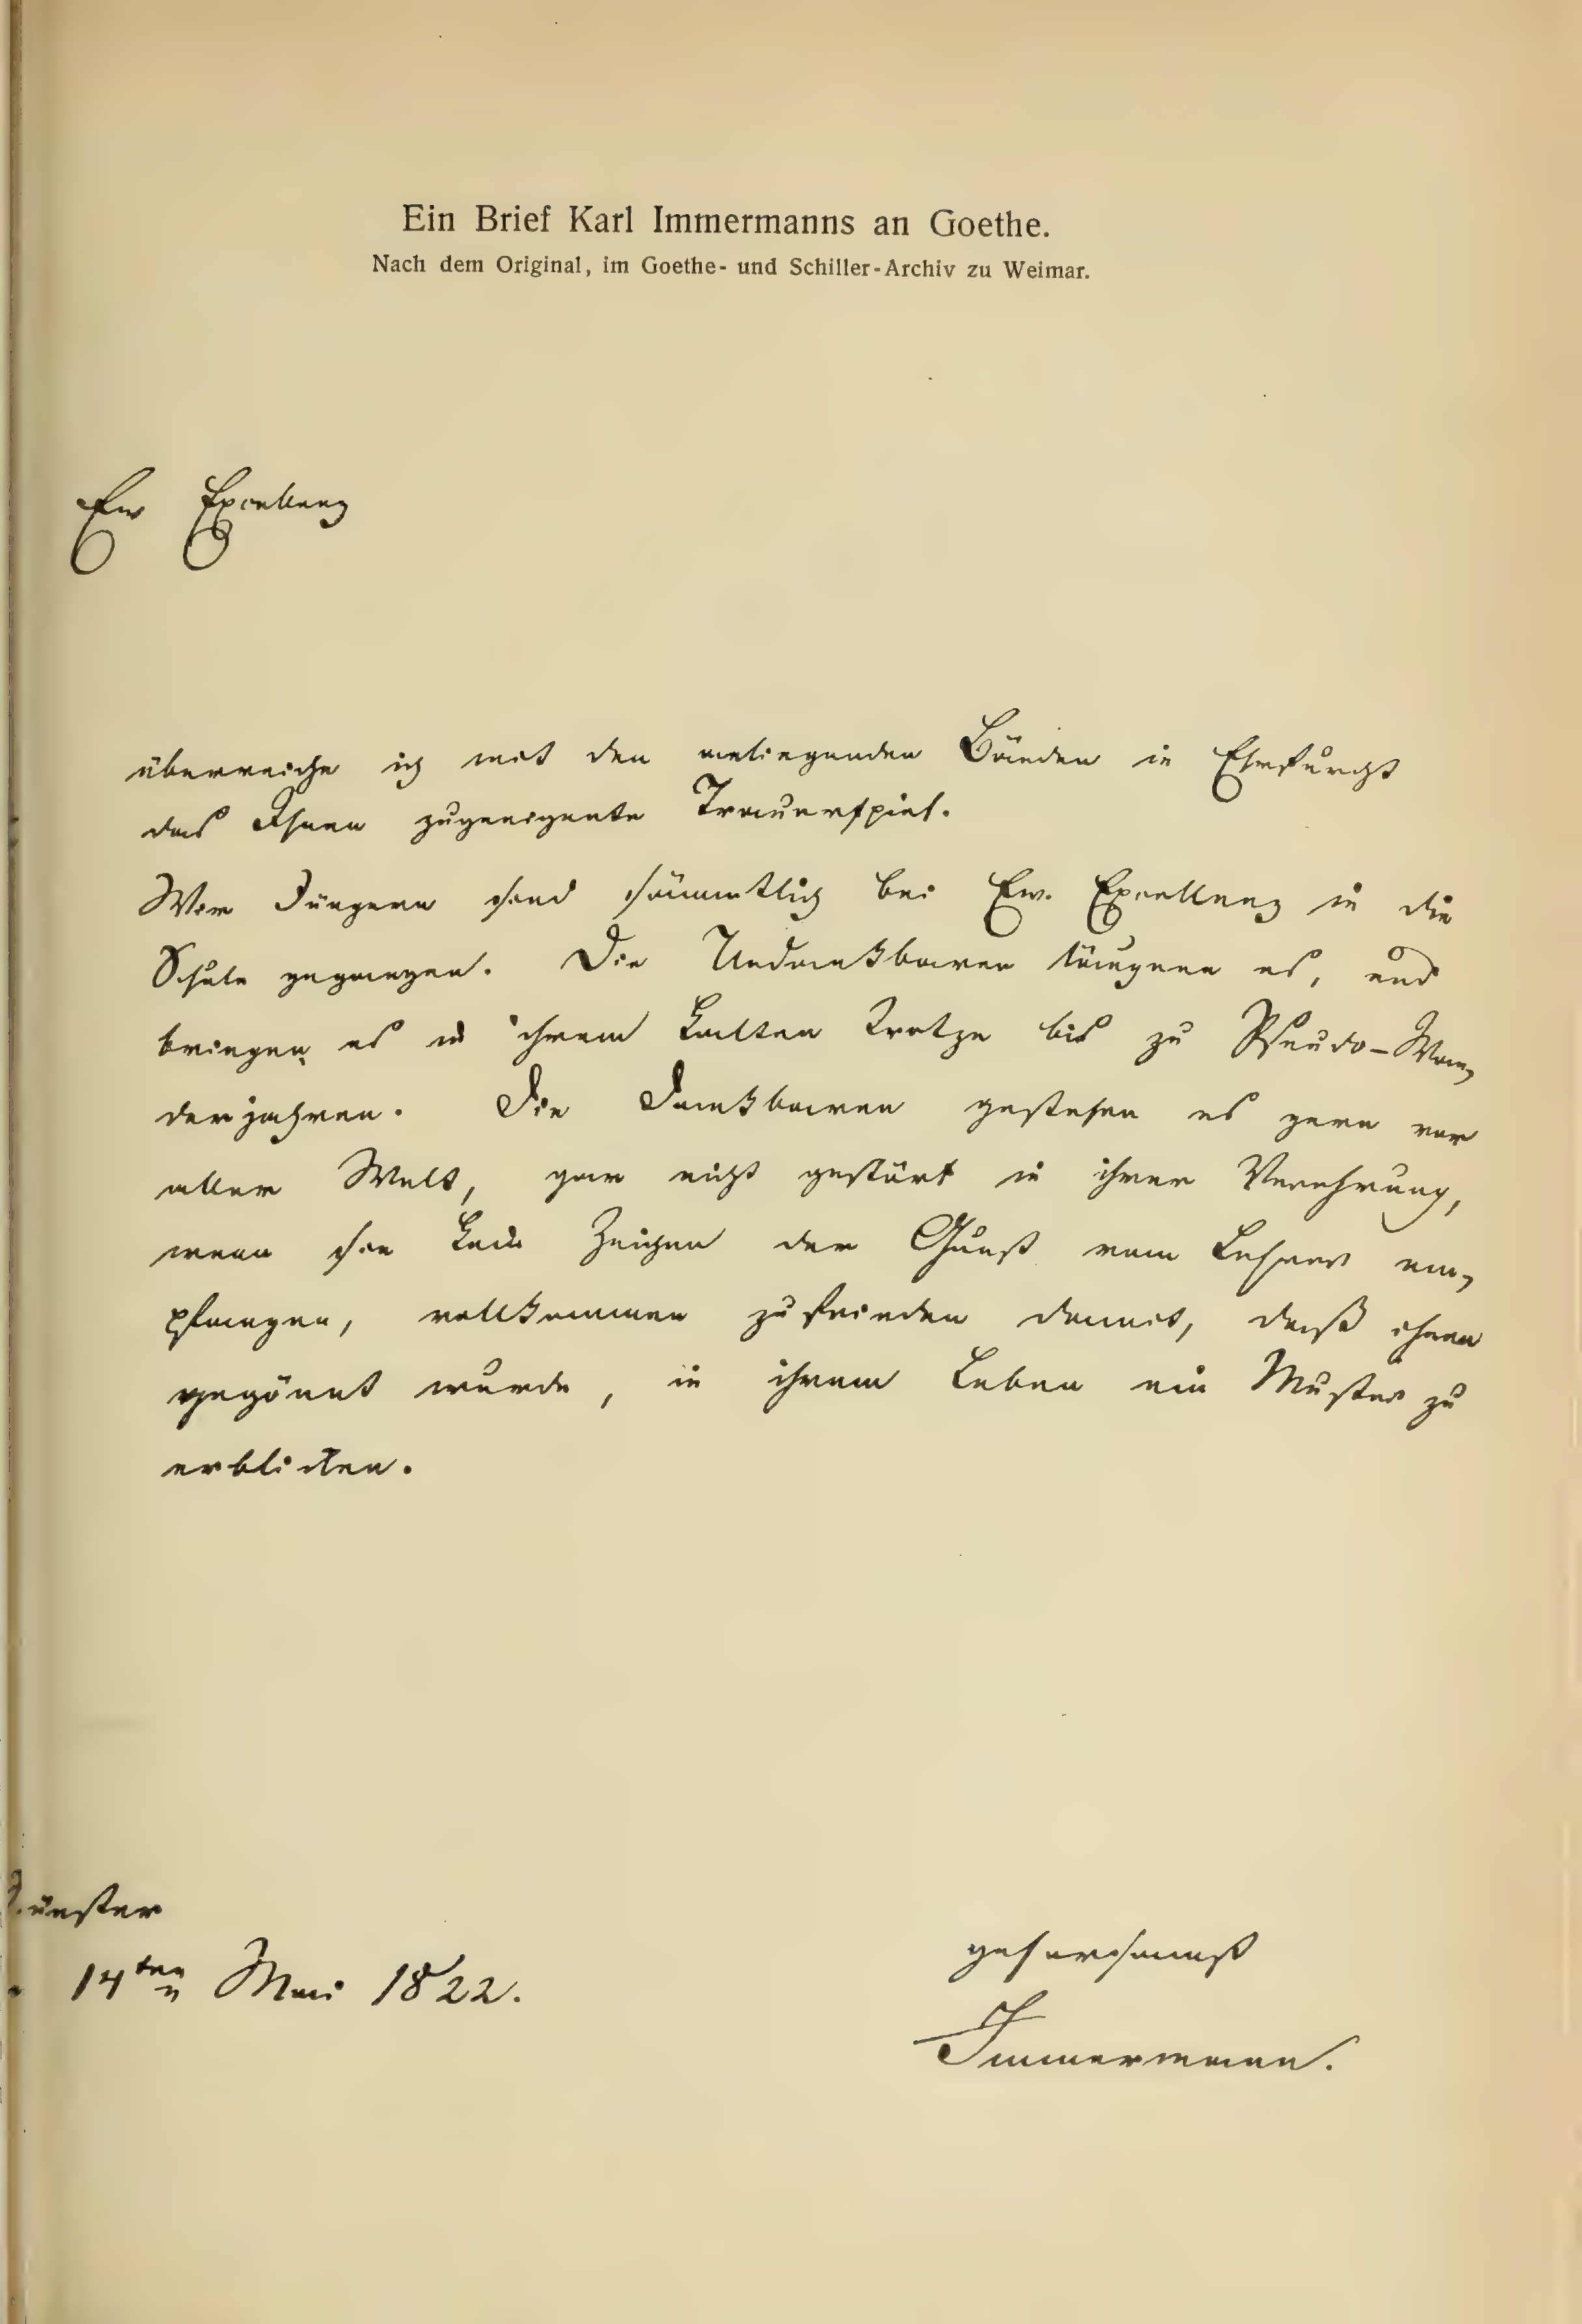 Ein Brief Karl Immermanns an Goethe.
Nach dem Original, im Goethe- und Schiller-Archiv zu Weimar.
Ew Excellenz
überreiche ich mit den anliegenden Bänden in Ehrfurcht
das Ihnen zugeeignete Trauerspiel.
Wir Jüngern sind sämmtlich bei Ew. Excellenz in die
Schule gegangen. Die Undankbaren läugnen es, und
bringen es in ihrem kalten Trotze bis zu Pseudo-Wan-
derjahren. Die Dankbaren gestehen es gern vor
aller Welt, gar nicht gestört in ihrer Verehrung,
wenn sie kein Zeichen der Gunst vom Lehrer em-
pfangen, vollkommen zufrieden damit, daß ihnen
gegönnt wurde, in ihrem Leben ein Muster zu
erblicken.
Münster
14ten Mai 1822.
gehorsamst
Immermann.